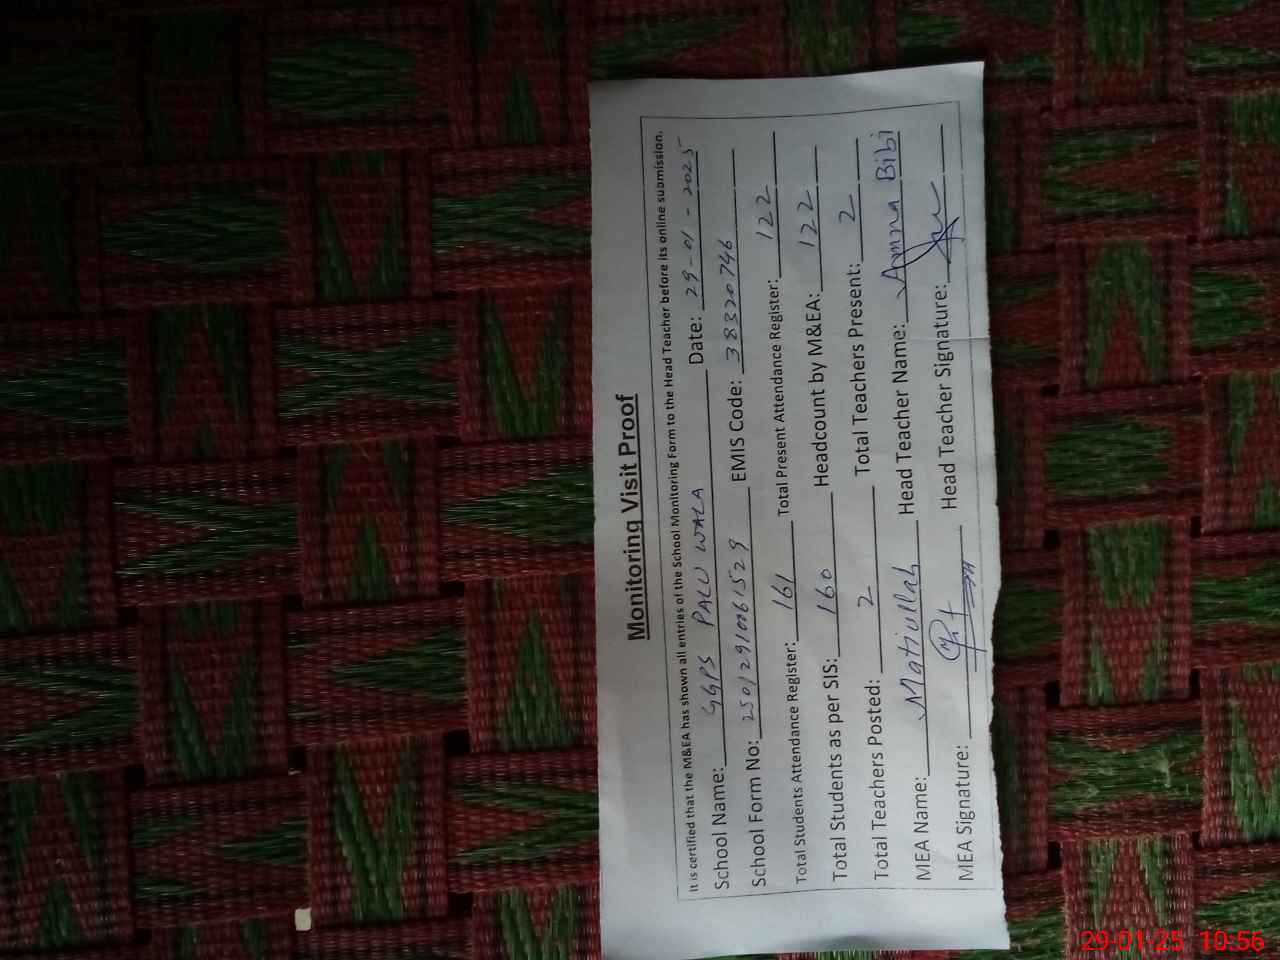 Monitoring Visit Proof
It is certified that the M&EA has shown all entries of the School Monitoring Form to the Head Teacher before its online submission.
School Name: GGPS PALU WALA Date: 29-01-2025
School Form No: 25012910061529 EMIS Code: 38320746
Total Students Attendance Register: 161 Total Present Attendance Register: 122
Total Students as per SIS: 160 Headcount by M&EA: 122
Total Teachers Posted: 2 Total Teachers Present: 2
MEA Name: Matiullah Head Teacher Name: Amna Bibi
MEA Signature: Head Teacher Signature:
29-01-25 10:56